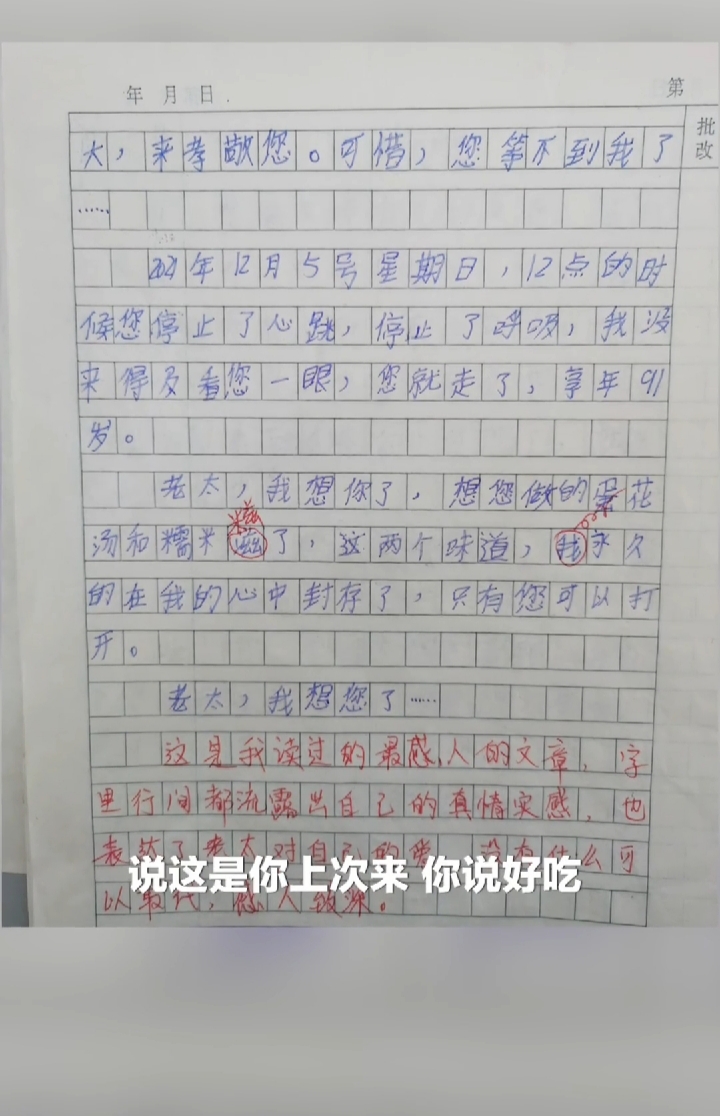 年 月 日.
第
批
改
大，来孝敬您。可惜，您等不到我了
……
2021年12月5号星期日，12点的时
候您停止了心跳，停止了呼吸，我没
来得及看您一眼，您就走了，享年91
岁。
老太，我想你了，想您做的蛋花
糍
汤和糯米滋了，这两个味道，我永久
的在我的心中封存了，只有您可以打
开。
老太，我想您了……
这是我读过的最感人的文章，字
里行间都流露出自己的真情实感，也
表达了老太对自己的爱，没有什么可
说这是你上次来 你说好吃
以取代，感人至深。